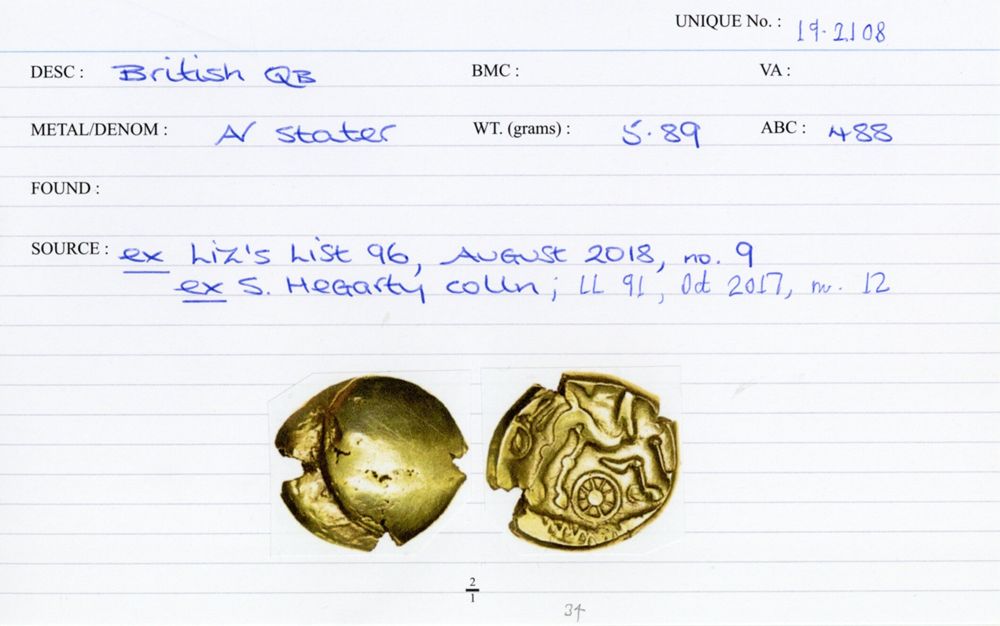 UNIQUE No. : 19.2108
DESC : British QB BMC : VA :
METAL/DENOM : AV stater WT. (grams) : 5.89 ABC : 488
FOUND :
SOURCE : ex Liz's List 96, August 2018, no. 9
ex S. Hegarty colln; LL 91, Oct 2017, no. 12
2
1
34